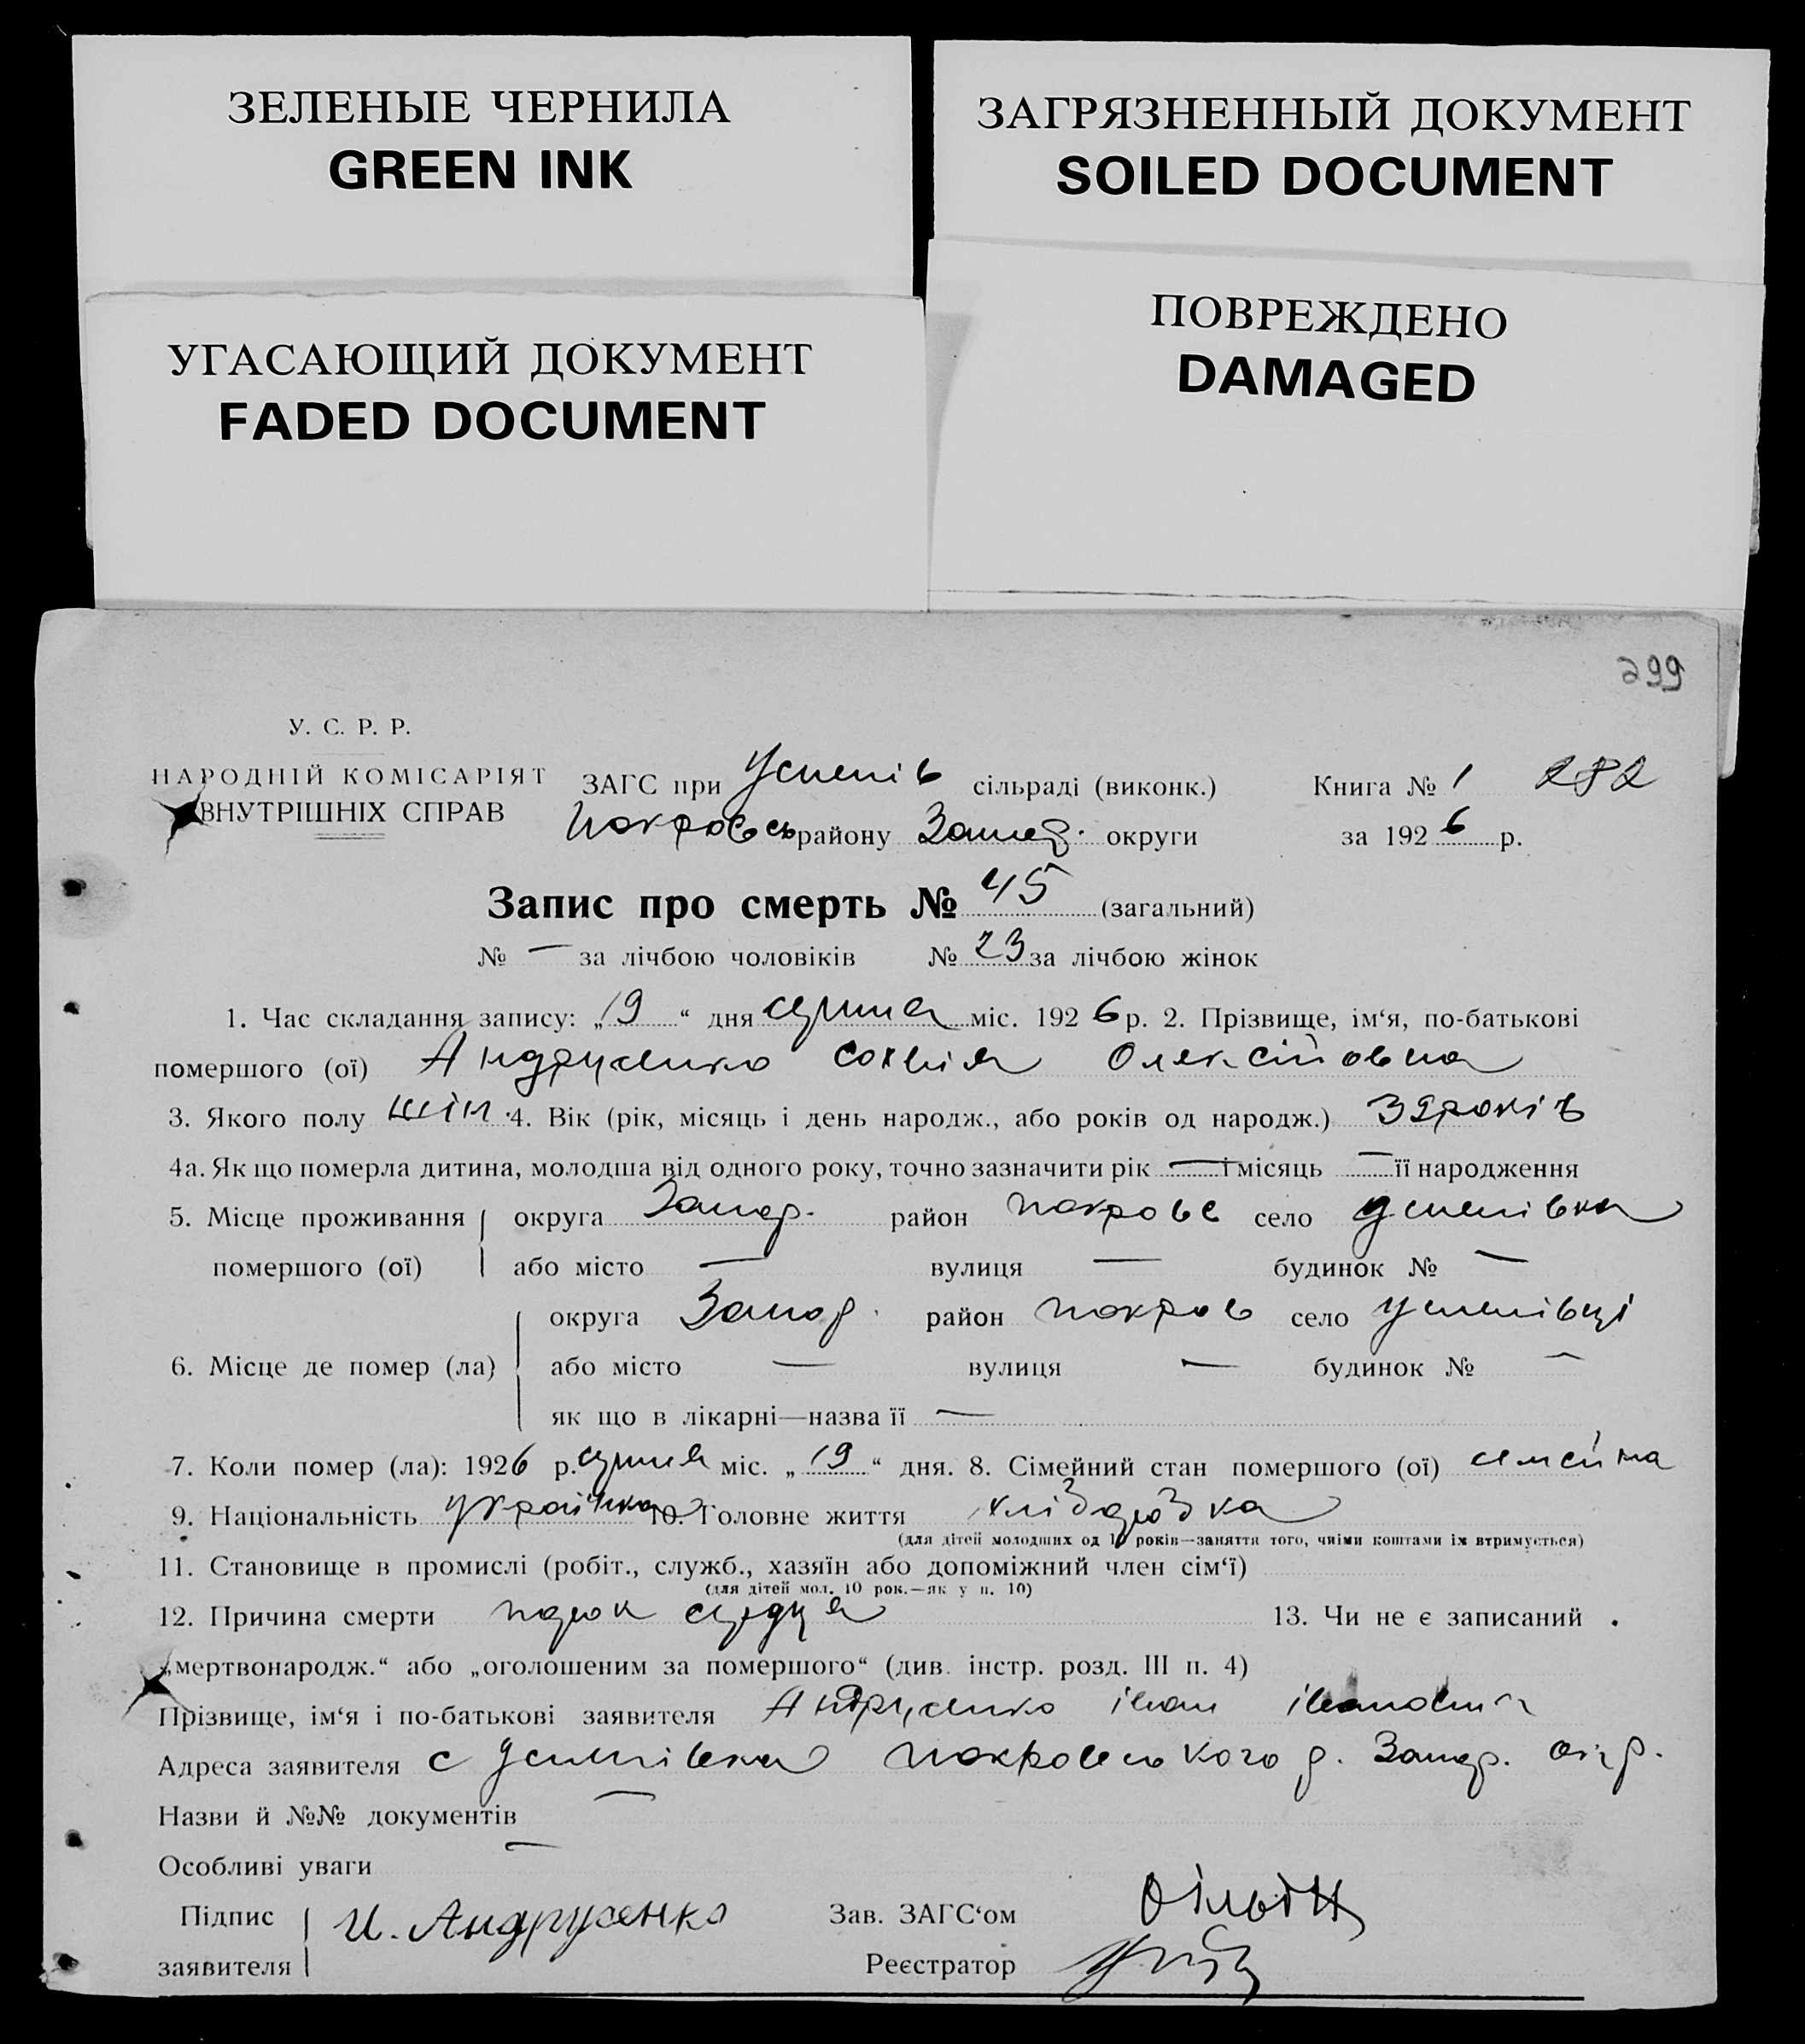 ЗЕЛЕНЫЕ ЧЕРНИЛА
GREEN INK
ЗАГРЯЗНЕННЫЙ ДОКУМЕНТ
SOILED DOCUMENT
УГАСАЮЩИЙ ДОКУМЕНТ
FADED DOCUMENT
ПОВРЕЖДЕНО
DAMAGED
299
У. С. Р. Р.
НАРОДНІЙ КОМІСАРІЯТ
ВНУТРІШНІХ СПРАВ
ЗАГС при Успенів сільраді (виконк.) Книга № 1 282
Покровсь району Запор. округи за 1926 р.
Запис про смерть № 45 (загальний)
№ — за лічбою чоловіків № 23 за лічбою жінок
1. Час складання запису: „19“ дня серпня міс. 1926 р. 2. Прізвище, ім‘я, по-батькові
помершого (ої) Андрусенко Олексійовна
3. Якого полу жін. 4. Вік (рік, місяць і день народж., або років од народж.) 39 років
4а. Як що померла дитина, молодша від одного року, точно зазначити рік — і місяць — її народження
5. Місце проживання округа Запор. район Покровс село Успенівка
помершого (ої) або місто — вулиця — будинок № —
округа Запор. район Покров село Успенівці
6. Місце де помер (ла) або місто — вулиця — будинок № —
як що в лікарні—назва її —
7. Коли помер (ла): 1926 р. серпня міс. „19“ дня. 8. Сімейний стан помершого (ої) семейна
9. Національність українка 10. Головне життя
(для дітей молодших од 10 років—заняття того, чиїми коштами їх втримується)
11. Становище в промислі (робіт., служб., хазяїн або допоміжний член сім‘ї)
(для дітей мол. 10 рок.—як у п. 10)
12. Причина смерти порок сердця 13. Чи не є записаний
„мертвонародж.“ або „оголошеним за помершого“ (див. інстр. розд. III п. 4)
Прізвище, ім‘я і по-батькові заявителя Андрусенко Іван Іванович
Адреса заявителя с Успенівка Покровського р. Запор. окр.
Назви й №№ документів —
Особливі уваги —
Підпис заявителя И. Андрусенко Зав. ЗАГС‘ом
Реєстратор